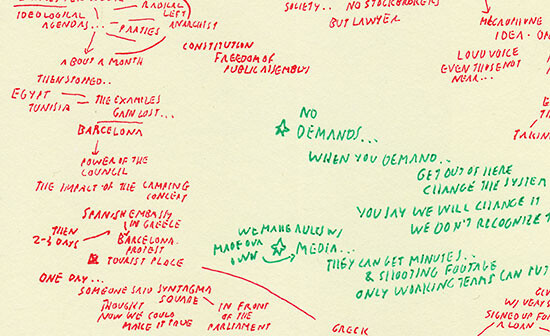 RADICAL
LEFT
ANARCHIST
IDEOLOGICAL
AGENDAS...
PARTIES
ABOUT A MONTH
CONSTITUTION
FREEDOM OF
PUBLIC ASSEMBLY
THEN STOPPED..
EGYPT
TUNISIA
THE EXAMPLES
GAIN LOST...
BARCELONA
POWER OF THE
COUNCIL
THE IMPACT OF THE CAMPING
CONCEPT
SPANISH EMBASSY
IN GREECE
THEN
2-3 DAYS
BARCELONA
PROTEST
TOURIST PLACE
ONE DAY...
SOMEONE SAID SYNTAGMA
SQUARE
THOUGHT
NOW WE COULD
MAKE IT
IN FRONT
OF THE
PARLIAMENT
SOCIETY.. NO STOCKBROKERS
BUT LAWYER
MICROPHONE
IDEA-
LOUD VOICE
EVEN THOSE NOT
NEAR...
NO
DEMANDS...
WHEN YOU DEMAND..
GET OUT OF HERE
CHANGE THE SYSTEM
YOU SAY WE WILL CHANGE IT
WE DON'T RECOGNIZE
WE MAKE RULES W/
MADE OUR
OWN
MEDIA...
THEY CAN GET MINUTES..
& SHOOTING FOOTAGE
ONLY WORKING TEAMS CAN PUT
SIGNED UP FOR
A LOAN
GREEK